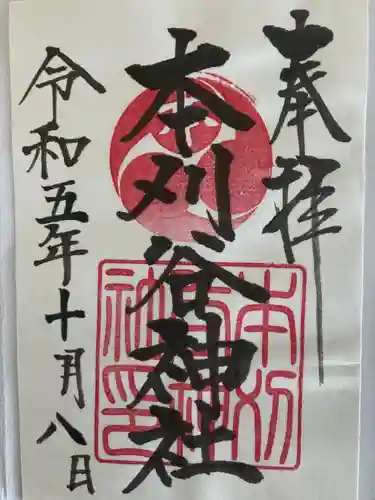 奉拝
本刈谷神社
令和五年十月八日
本刈谷神社印